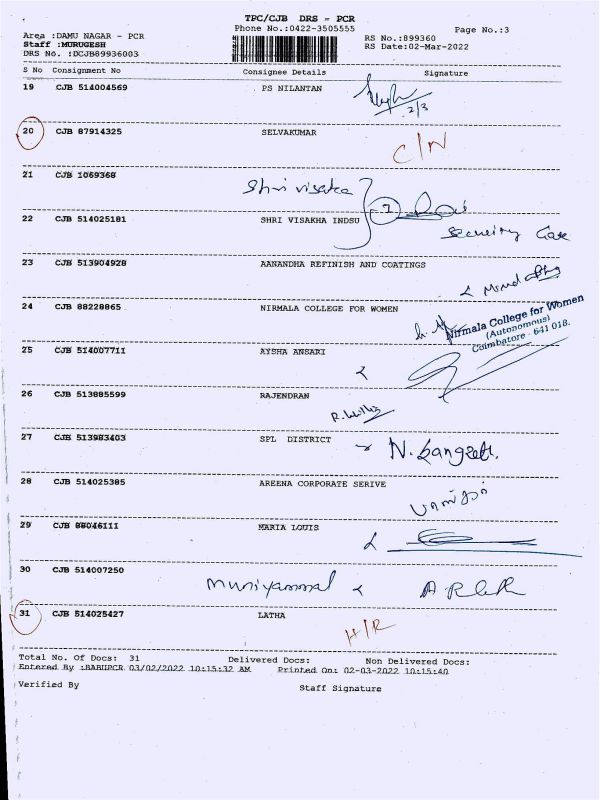 TPC/CJB DRS - PCR
Phone No.:0422-3505555
Page No.:3
Area :DAMU NAGAR - PCR
Staff :MURUGESH
DRS No. :DCJB89936003
RS No.:899360
RS Date:02-Mar-2022
S No Consignment No Consignee Details Signature
19 CJB 514004569 PS NILANTAN
2/3
20 CJB 87914325 SELVAKUMAR
C/N
21 CJB 1069368
Shri visaka
22 CJB 514025181 SHRI VISAKHA INDSU
Security Gate
23 CJB 513904928 AANANDHA REFINISH AND COATINGS
24 CJB 88228865 NIRMALA COLLEGE FOR WOMEN
Nirmala College for Women
(Autonomous)
Coimbatore - 641 018.
25 CJB 514007711 AYSHA ANSARI
26 CJB 513885599 RAJENDRAN
27 CJB 513983403 SPL DISTRICT
N. Sangeeth.
28 CJB 514025385 AREENA CORPORATE SERIVE
29 CJB 88046111 MARIA LOUIS
30 CJB 514007250
Muniyammal
31 CJB 514025427 LATHA
H/R
Total No. Of Docs: 31 Delivered Docs: Non Delivered Docs:
Entered By :BABUPCR 03/02/2022 10:15:32 AM Printed On: 02-03-2022 10:15:40
Verified By Staff Signature